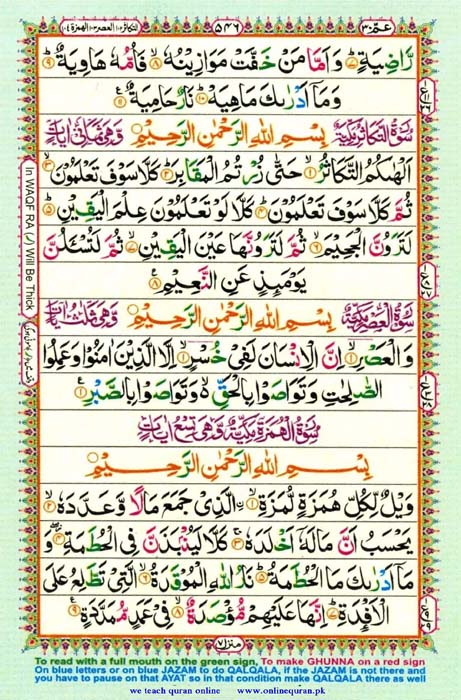 عـمّ ٣٠ ٥٤٦ التكاثر ١٠٢ العصر ١٠٣ الهمزة ١٠٤
رَّاضِيَةٍ ۞ وَاَمَّا مَنْ خَفَّتْ مَوَازِيْنُهٗ ۙ۸ فَاُمُّهٗ هَاوِيَةٌ ؕ۹
وَمَاۤ اَدْرٰىكَ مَاهِيَهْ ؕ۱۰ نَارٌ حَامِيَةٌ ۱۱
سُوْرَةُ التَّكَاثُرِ مَكِّيَّةٌ بِسْمِ اللّٰهِ الرَّحْمٰنِ الرَّحِيْمِ وَّهِىَ ثَمَانِىْ اٰيَاتٍ
اَلْهٰىكُمُ التَّكَاثُرُ ۙ۱ حَتّٰى زُرْتُمُ الْمَقَابِرَ ؕ۲ كَلَّا سَوْفَ تَعْلَمُوْنَ ۙ۳
ثُمَّ كَلَّا سَوْفَ تَعْلَمُوْنَ ؕ۴ كَلَّا لَوْ تَعْلَمُوْنَ عِلْمَ الْيَقِيْنِ ؕ۵
لَتَرَوُنَّ الْجَحِيْمَ ۙ۶ ثُمَّ لَتَرَوُنَّهَا عَيْنَ الْيَقِيْنِ ۙ۷ ثُمَّ لَتُسْـَٔلُنَّ
يَوْمَئِذٍ عَنِ النَّعِيْمِ ۸
سُوْرَةُ الْعَصْرِ مَكِّيَّةٌ بِسْمِ اللّٰهِ الرَّحْمٰنِ الرَّحِيْمِ وَّهِىَ ثَلٰثُ اٰيَاتٍ
وَالْعَصْرِ ۙ۱ اِنَّ الْاِنْسَانَ لَفِىْ خُسْرٍ ۙ۲ اِلَّا الَّذِيْنَ اٰمَنُوْا وَعَمِلُوا
الصّٰلِحٰتِ وَتَوَاصَوْا بِالْحَقِّ ۙ وَتَوَاصَوْا بِالصَّبْرِ ۳
سُوْرَةُ الْهُمَزَةِ مَكِّيَّةٌ وَّهِىَ تِسْعُ اٰيَاتٍ
بِسْمِ اللّٰهِ الرَّحْمٰنِ الرَّحِيْمِ
وَيْلٌ لِّكُلِّ هُمَزَةٍ لُّمَزَةٍ ۙ۱ اۨلَّذِىْ جَمَعَ مَالًا وَّعَدَّدَهٗ ۙ۲
يَحْسَبُ اَنَّ مَالَهٗۤ اَخْلَدَهٗ ۚ۳ كَلَّا لَيُنْۢبَذَنَّ فِى الْحُطَمَةِ ۖ۴ وَ
مَاۤ اَدْرٰىكَ مَا الْحُطَمَةُ ؕ۵ نَارُ اللّٰهِ الْمُوْقَدَةُ ۙ۶ الَّتِىْ تَطَّلِعُ عَلَى
الْاَفْـِٕدَةِ ؕ۷ اِنَّهَا عَلَيْهِمْ مُّؤْصَدَةٌ ۙ۸ فِىْ عَمَدٍ مُّمَدَّدَةٍ ۹
منزل ٧
In WAQF RA (ر) Will Be Thick
To read with a full mouth on the green sign, To make GHUNNA on a red sign
On blue letters or on blue JAZAM to do QALQALA, if the JAZAM is not there and
you have to pause on that AYAT so in that condition make QALQALA there as well
we teach quran online www.onlinequran.pk